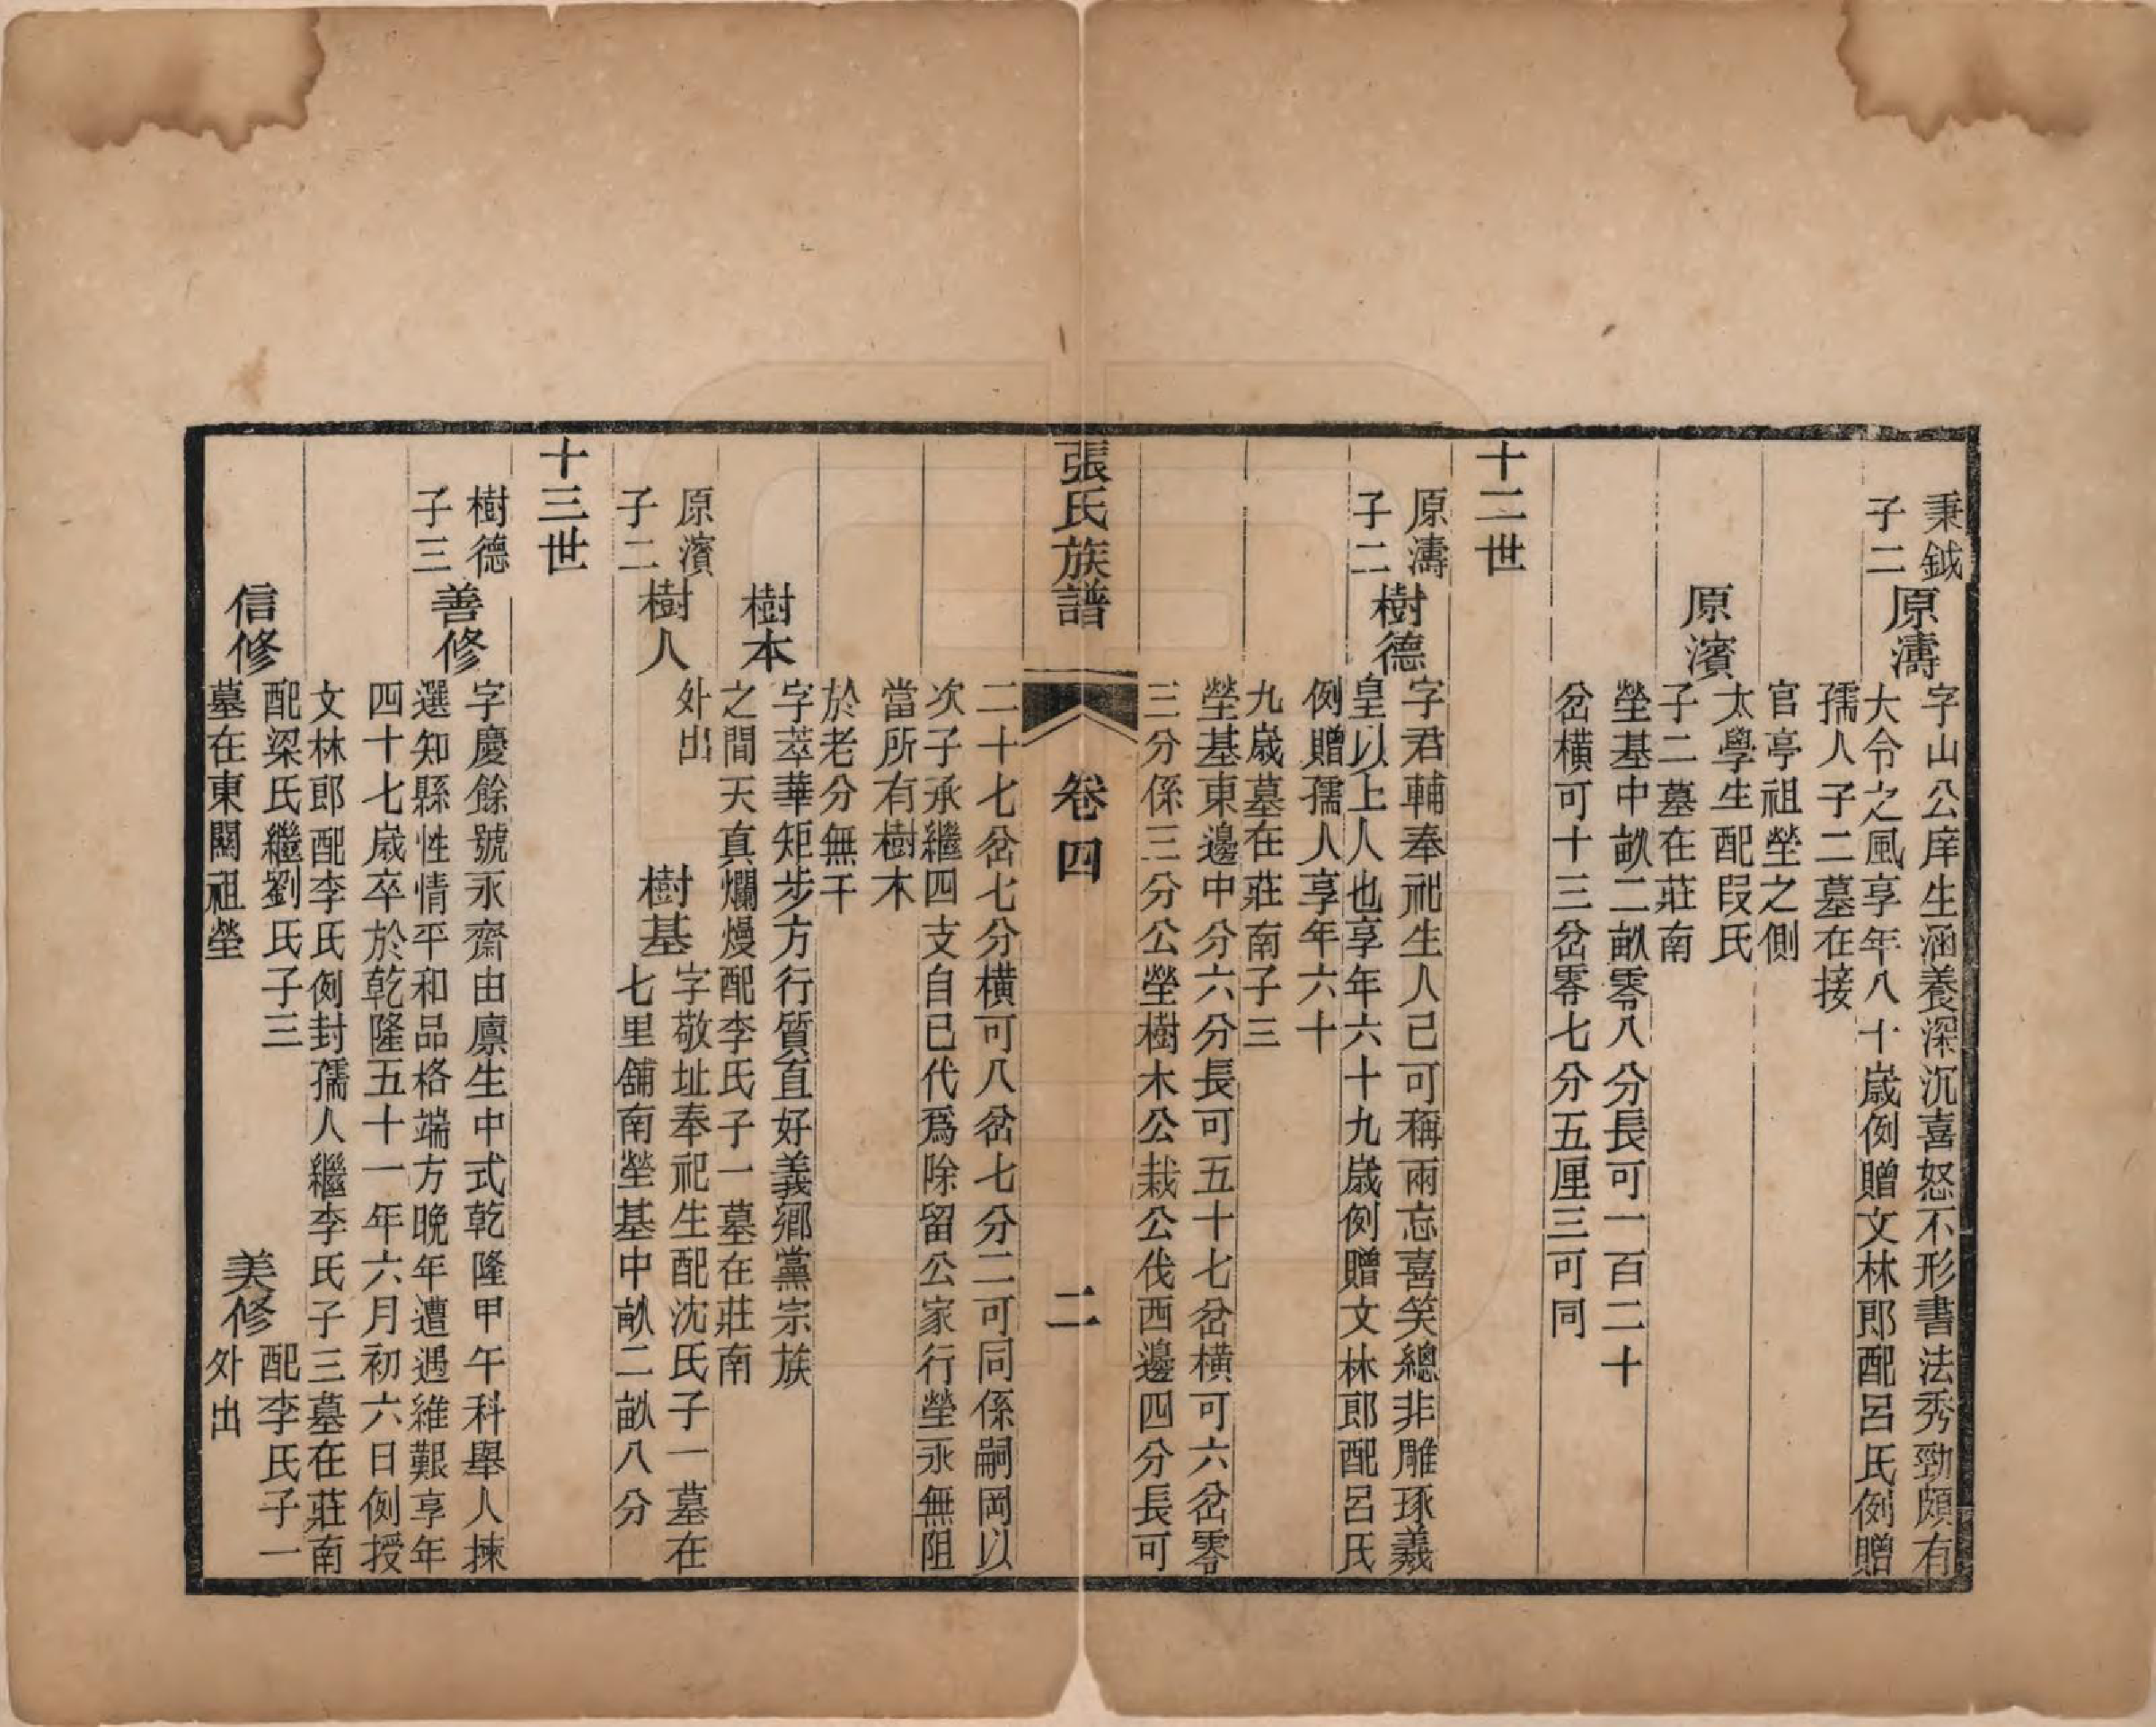 秉鉞
子二
原濤
字山公庠生涵養深沉喜怒不形書法秀勁頗有
大令之風享年八十歲例贈文林郎配呂氏例贈
孺人子二墓在接
官亭祖塋之側
原濱
太學生配叚氏
子二墓在莊南
塋基中畝二畝零八分長可一百二十
岔橫可十三岔零七分五厘三可同
十二世
原濤
子二
樹德
字君輔奉祀生人己可稱兩忘喜笑總非雕琢羲
皇以上人也享年六十九歲例贈文林郎配呂氏
例贈孺人享年六十
九歲墓在莊南子三
塋基東邊中分六分長可五十七岔橫可六岔零
三分係三分公塋樹木公栽公伐西邊四分長可
張氏族譜
卷四
二
二十七岔七分橫可八岔七分二可同係嗣岡以
次子承繼四支自已代爲除留公家行塋永無阻
當所有樹木
於老分無干
樹本
字萃華矩步方行質直好義鄉黨宗族
之間天真爛熳配李氏子一墓在莊南
原濱
子二
樹人
外出
樹基
字敬址奉祀生配沈氏子一墓在
七里舖南塋基中畝二畝八分
十三世
樹德
子三
善修
字慶餘號永齋由廪生中式乾隆甲午科舉人揀
選知縣性情平和品格端方晚年遭遇維艱享年
四十七歲卒於乾隆五十一年六月初六日例授
文林郎配李氏例封孺人繼李氏子三墓在莊南
信修
配梁氏繼劉氏子三
墓在東關祖塋
美修
配李氏子一
外出